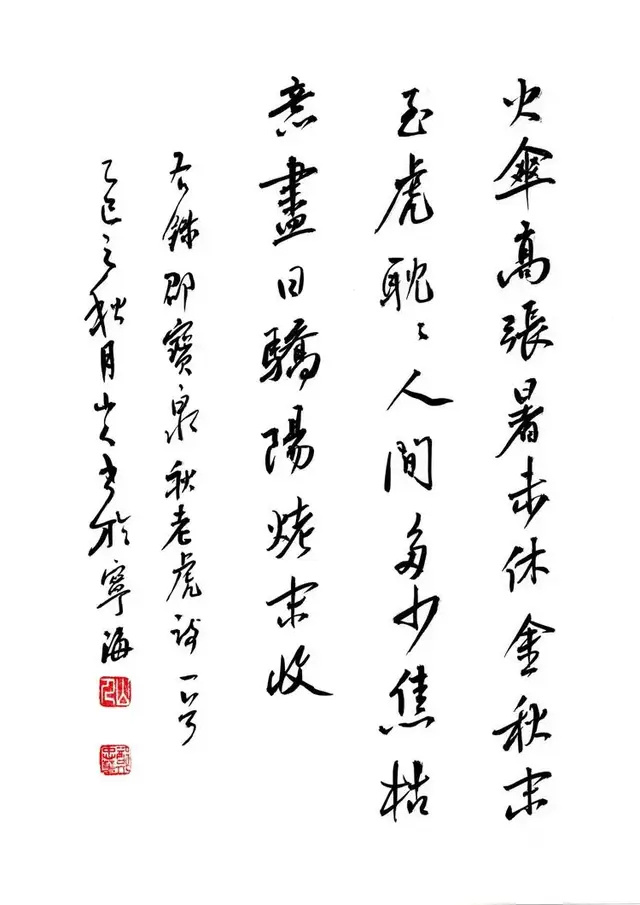 火傘高張暑未休金秋未
至虎耽〻人間多少焦枯
意盡日驕陽烤未收
右錄寶泉秋老虎詩一首
乙巳之秋月山人書於寧海